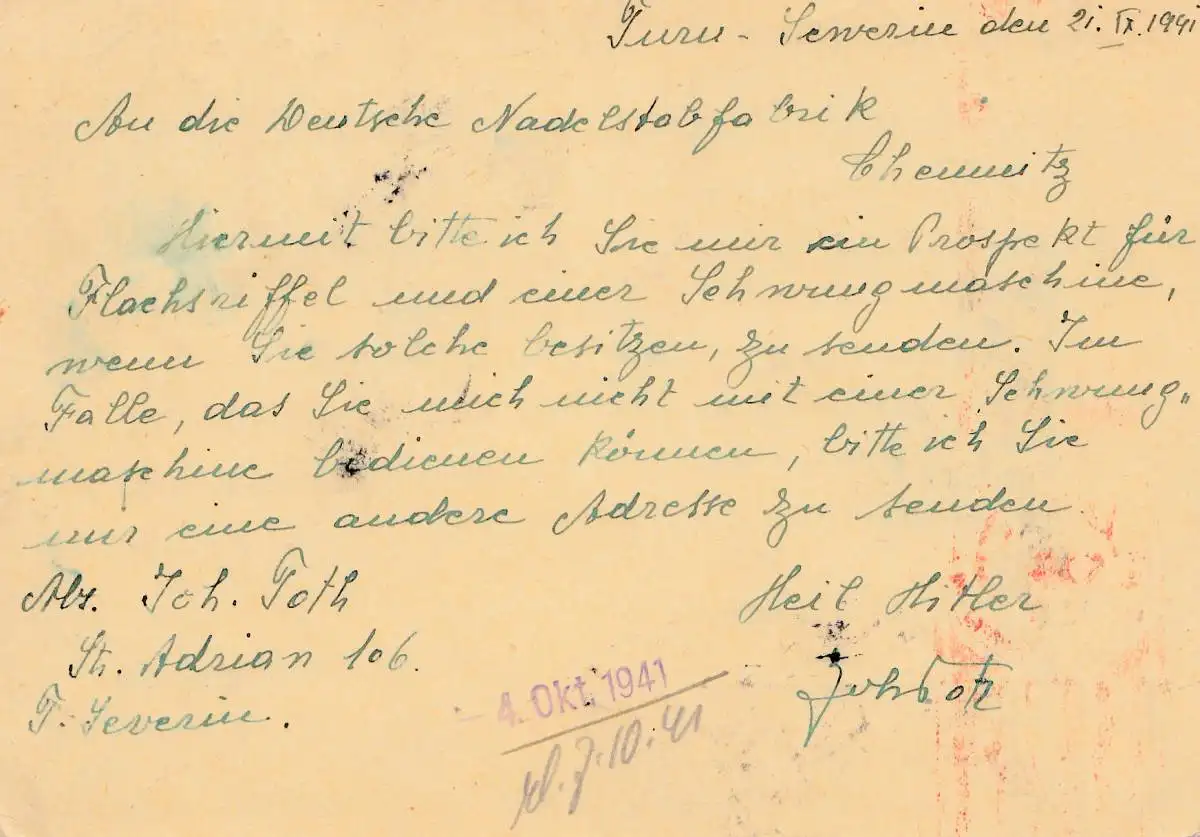 Turn - Sewerin den 21. IX. 1941
An die Deutsche Nadelstabfabrik
Chemnitz
Hiermit bitte ich Sie mir ein Prospekt für
Flachsriffel und einer Schwungmaschine,
wenn Sie solche besitzen, zu senden. Im
Falle, das Sie mich nicht mit einer Schwung„
maschine bedienen können, bitte ich Sie
mir eine andere Adresse zu senden.
Abs. Joh. Toth
Str. Adrian 106.
T. Severin.
Heil Hitler
Joh Toth
- 4. Okt. 1941
7.10.41